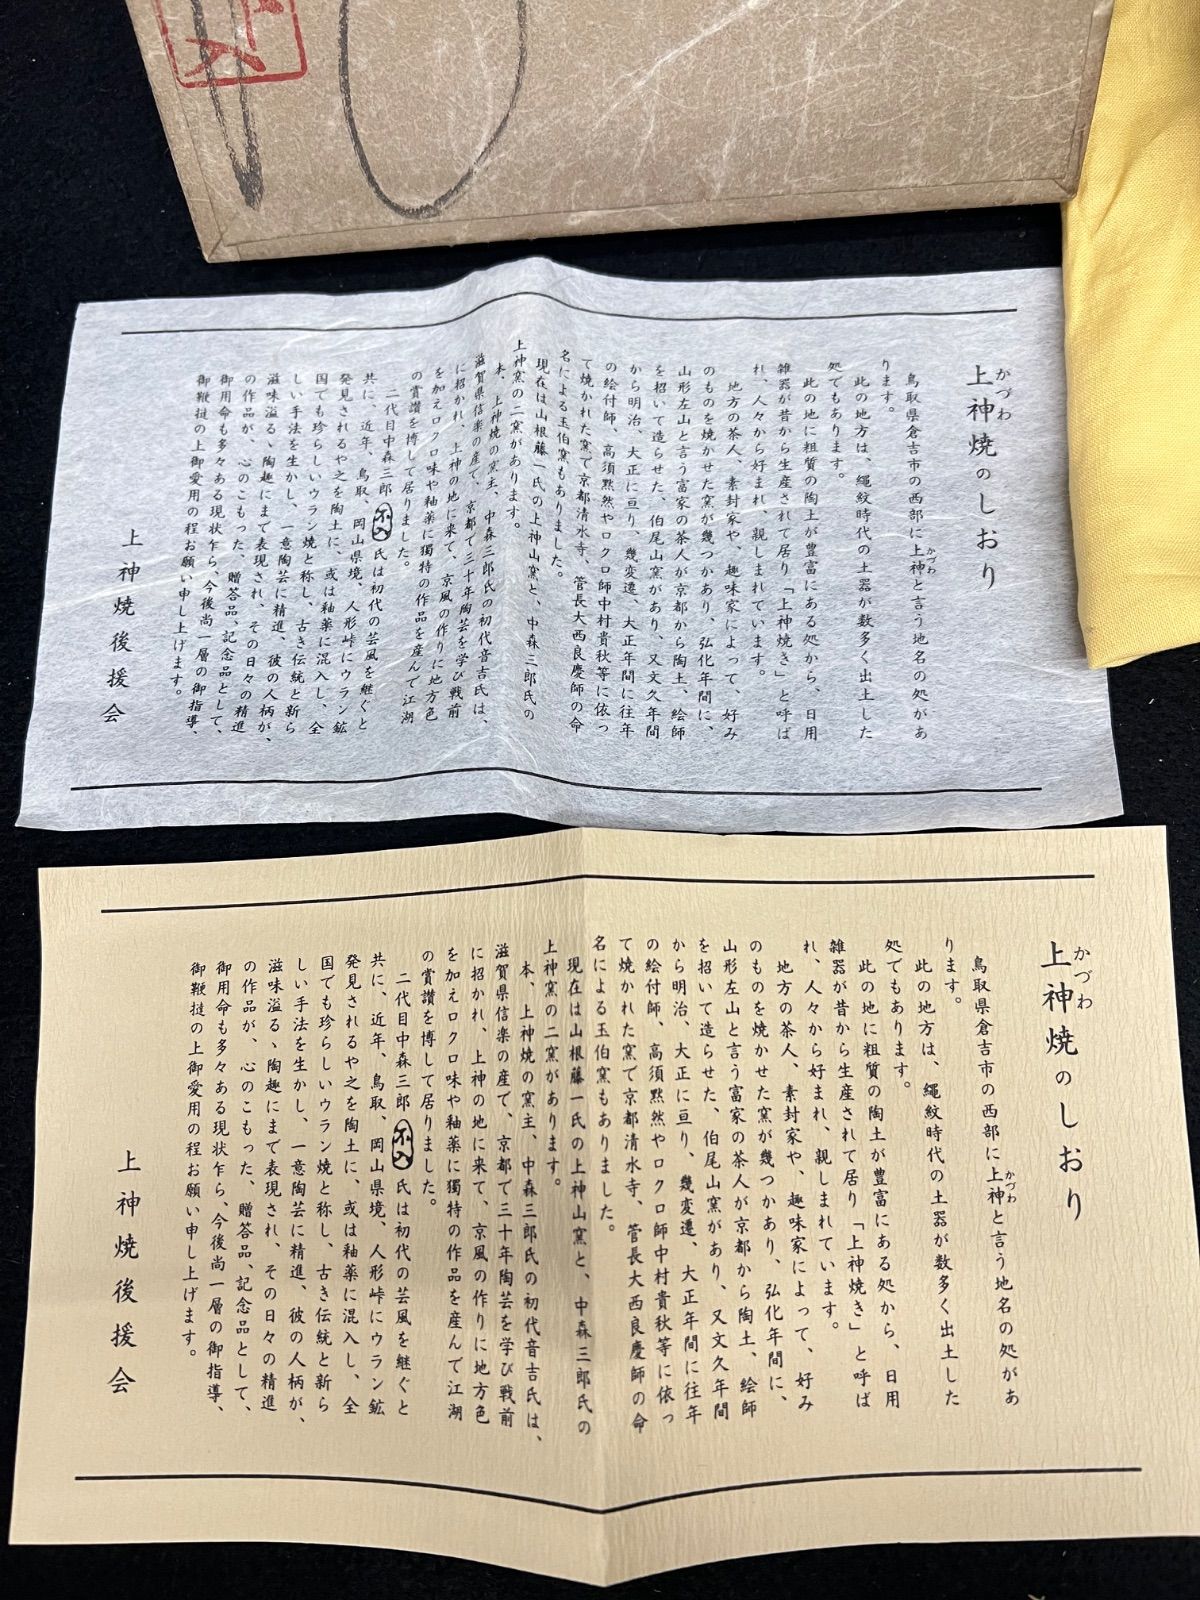 上神焼のしおり
かづわ
鳥取県倉吉市の西部に上神と言う地名の処があ
かづわ
ります。
此の地方は、縄紋時代の土器が数多く出土した
処でもあります。
此の地に粗質の陶土が豊富にある処から、日用
雑器が昔から生産されて居り「上神焼き」と呼ば
れ、人々から好まれ、親しまれています。
地方の茶人、素封家や、趣味家によって、好み
のものを焼かせた窯が幾つかあり、弘化年間に、
山形左山と言う富家の茶人が京都から陶土、絵師
を招いて造らせた、伯尾山窯があり、又文久年間
から明治、大正に亘り、幾変遷、大正年間に往年
の絵付師、高須黙然やロクロ師中村貴秋等に依っ
て焼かれた窯で京都清水寺、管長大西良慶師の命
名による玉伯窯もありました。
現在は山根藤一氏の上神山窯と、中森三郎氏の
上神窯の二窯があります。
本、上神焼の窯主、中森三郎氏の初代音吉氏は、
滋賀県信楽の産で、京都で三十年陶芸を学び戦前
に招かれ、上神の地に来て、京風の作りに地方色
を加えロクロ味や釉薬に獨特の作品を産んで江湖
の賞讃を博して居りました。
二代目中森三郎不入氏は初代の芸風を継ぐと
共に、近年、鳥取、岡山県境、人形峠にウラン鉱
発見されるや之を陶土に、或は釉薬に混入し、全
国でも珍らしいウラン焼と称し、古き伝統と新ら
しい手法を生かし、一意陶芸に精進、彼の人柄が、
滋味溢るゝ陶趣にまで表現され、その日々の精進
の作品が、心のこもった、贈答品、記念品として、
御用命も多々ある現状乍ら、今後尚一層の御指導、
御鞭撻の上御愛用の程お願い申し上げます。
上神焼後援会
上神焼のしおり
かづわ
鳥取県倉吉市の西部に上神と言う地名の処があ
かづわ
ります。
此の地方は、縄紋時代の土器が数多く出土した
処でもあります。
此の地に粗質の陶土が豊富にある処から、日用
雑器が昔から生産されて居り「上神焼き」と呼ば
れ、人々から好まれ、親しまれています。
地方の茶人、素封家や、趣味家によって、好み
のものを焼かせた窯が幾つかあり、弘化年間に、
山形左山と言う富家の茶人が京都から陶土、絵師
を招いて造らせた、伯尾山窯があり、又文久年間
から明治、大正に亘り、幾変遷、大正年間に往年
の絵付師、高須黙然やロクロ師中村貴秋等に依っ
て焼かれた窯で京都清水寺、管長大西良慶師の命
名による玉伯窯もありました。
現在は山根藤一氏の上神山窯と、中森三郎氏の
上神窯の二窯があります。
本、上神焼の窯主、中森三郎氏の初代音吉氏は、
滋賀県信楽の産で、京都で三十年陶芸を学び戦前
に招かれ、上神の地に来て、京風の作りに地方色
を加えロクロ味や釉薬に獨特の作品を産んで江湖
の賞讃を博して居りました。
二代目中森三郎不入氏は初代の芸風を継ぐと
共に、近年、鳥取、岡山県境、人形峠にウラン鉱
発見されるや之を陶土に、或は釉薬に混入し、全
国でも珍らしいウラン焼と称し、古き伝統と新ら
しい手法を生かし、一意陶芸に精進、彼の人柄が、
滋味溢るゝ陶趣にまで表現され、その日々の精進
の作品が、心のこもった、贈答品、記念品として、
御用命も多々ある現状乍ら、今後尚一層の御指導、
御鞭撻の上御愛用の程お願い申し上げます。
上神焼後援会